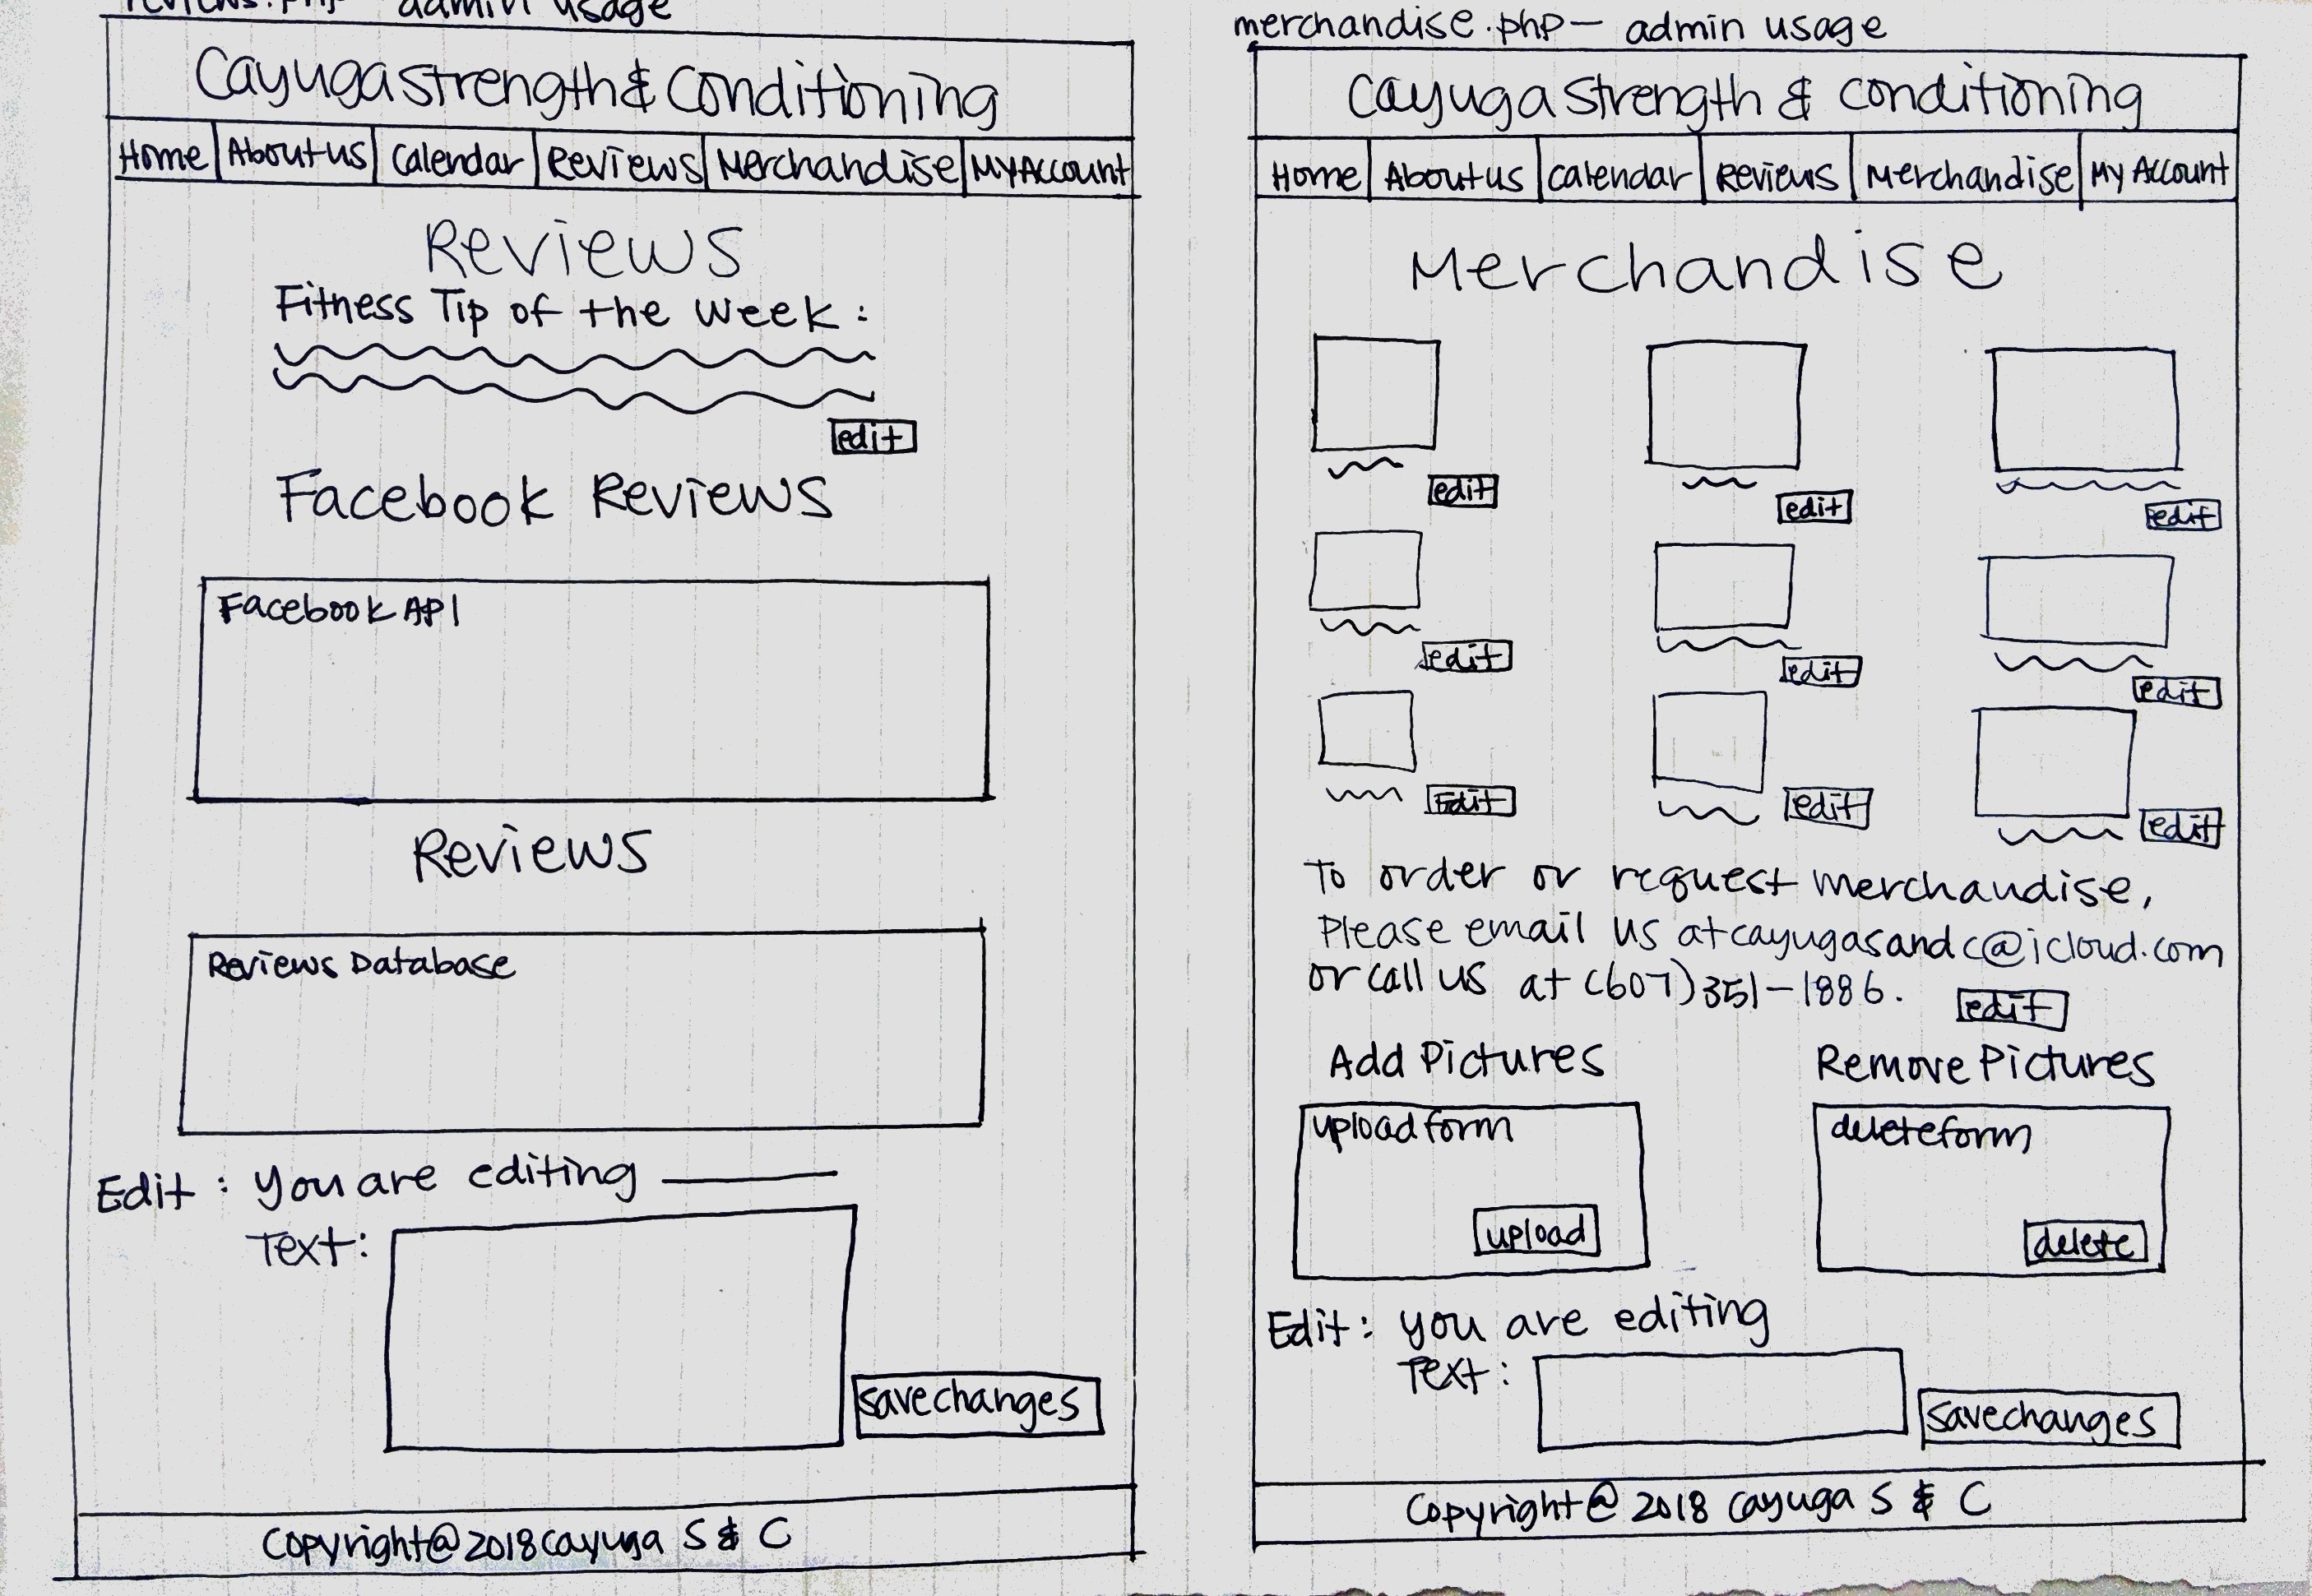 reviews.php - admin usage
Cayuga Strength & Conditioning
Home About us Calendar Reviews Merchandise My Account
Reviews
Fitness Tip of the Week :
edit
Facebook Reviews
Facebook API
Reviews
Reviews Database
Edit : You are editing
Text:
save changes
Copyright@ 2018 Cayuga S & C
merchandise.php — admin usage
Cayuga Strength & Conditioning
Home About us Calendar Reviews Merchandise My Account
Merchandise
edit edit edit
edit edit edit
Edit edit edit
To order or request merchandise,
Please email us at cayugasandc@icloud.com
or call us at (607)351-1886.
edit
Add Pictures Remove Pictures
upload form delete form
upload delete
Edit: you are editing
Text:
save changes
Copyright@ 2018 Cayuga S & C